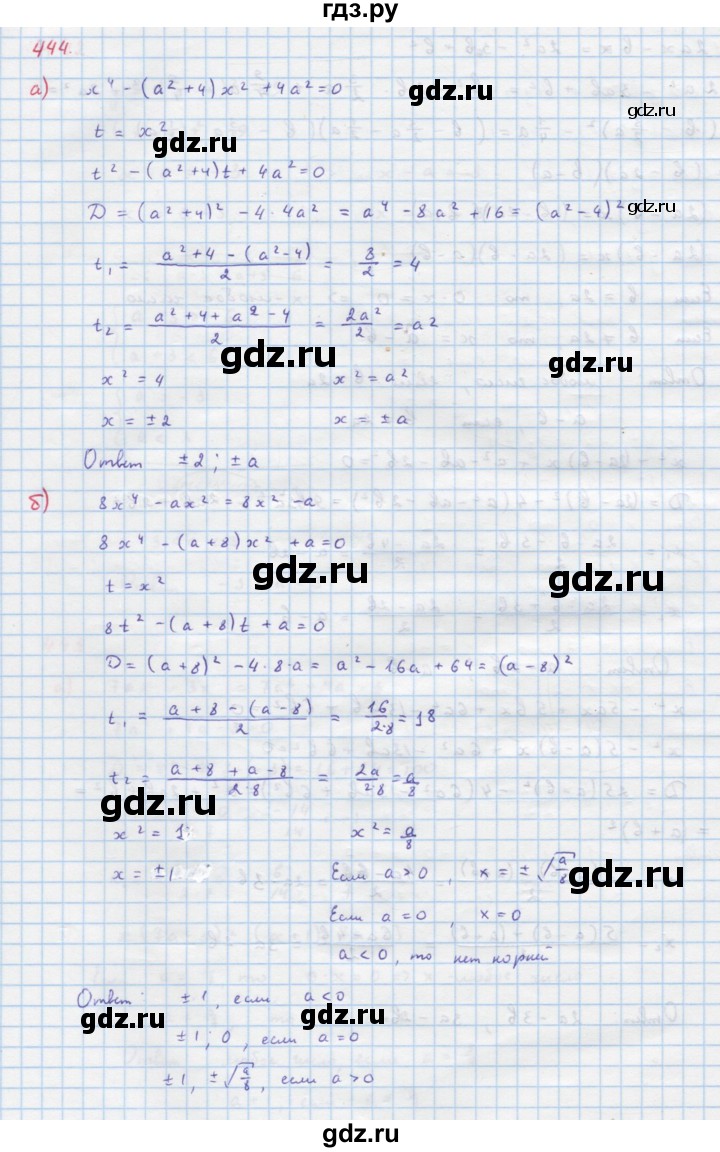 гдз.ру
444.
а) x⁴ - (a² + 4) x² + 4a² = 0
gdz.ru
gdz.ru
t = x²
gdz.ru
t² - (a² + 4) t + 4a² = 0
D = (a² + 4)² - 4 · 4a² = a⁴ - 8a² + 16 = (a² - 4)²
gdz.ru
t₁ = (a² + 4 - (a² - 4))/2 = 8/2 = 4
t₂ = (a² + 4 + a² - 4)/2 = 2a²/2 = a²
gdz.ru
gdz.ru
x² = 4 x² = a²
x = ± 2 x = ± a
Ответ ± 2 ; ± a
б) 8x⁴ - ax² = 8x² - a
8x⁴ - (a + 8) x² + a = 0
gdz.ru
gdz.ru
t = x²
8t² - (a + 8) t + a = 0
D = (a + 8)² - 4 · 8 · a = a² - 16a + 64 = (a - 8)²
t₁ = (a + 8 - (a - 8))/2 = 16/(2·8) = 18
t₂ = (a + 8 + a - 8)/(2·8) = 2a/(2·8) = a/8
gdz.ru
x² = 1 x² = a/8
x = ± 1 Если a > 0 , x = ± √(a/8)
gdz.ru
Если a = 0 , x = 0
a < 0 , то нет корней
gdz.ru
Ответ: ± 1 , если a < 0
gdz.ru
gdz.ru
± 1 ; 0 , если a = 0
± 1 , ± √(a/8) , если a > 0
gdz.ru